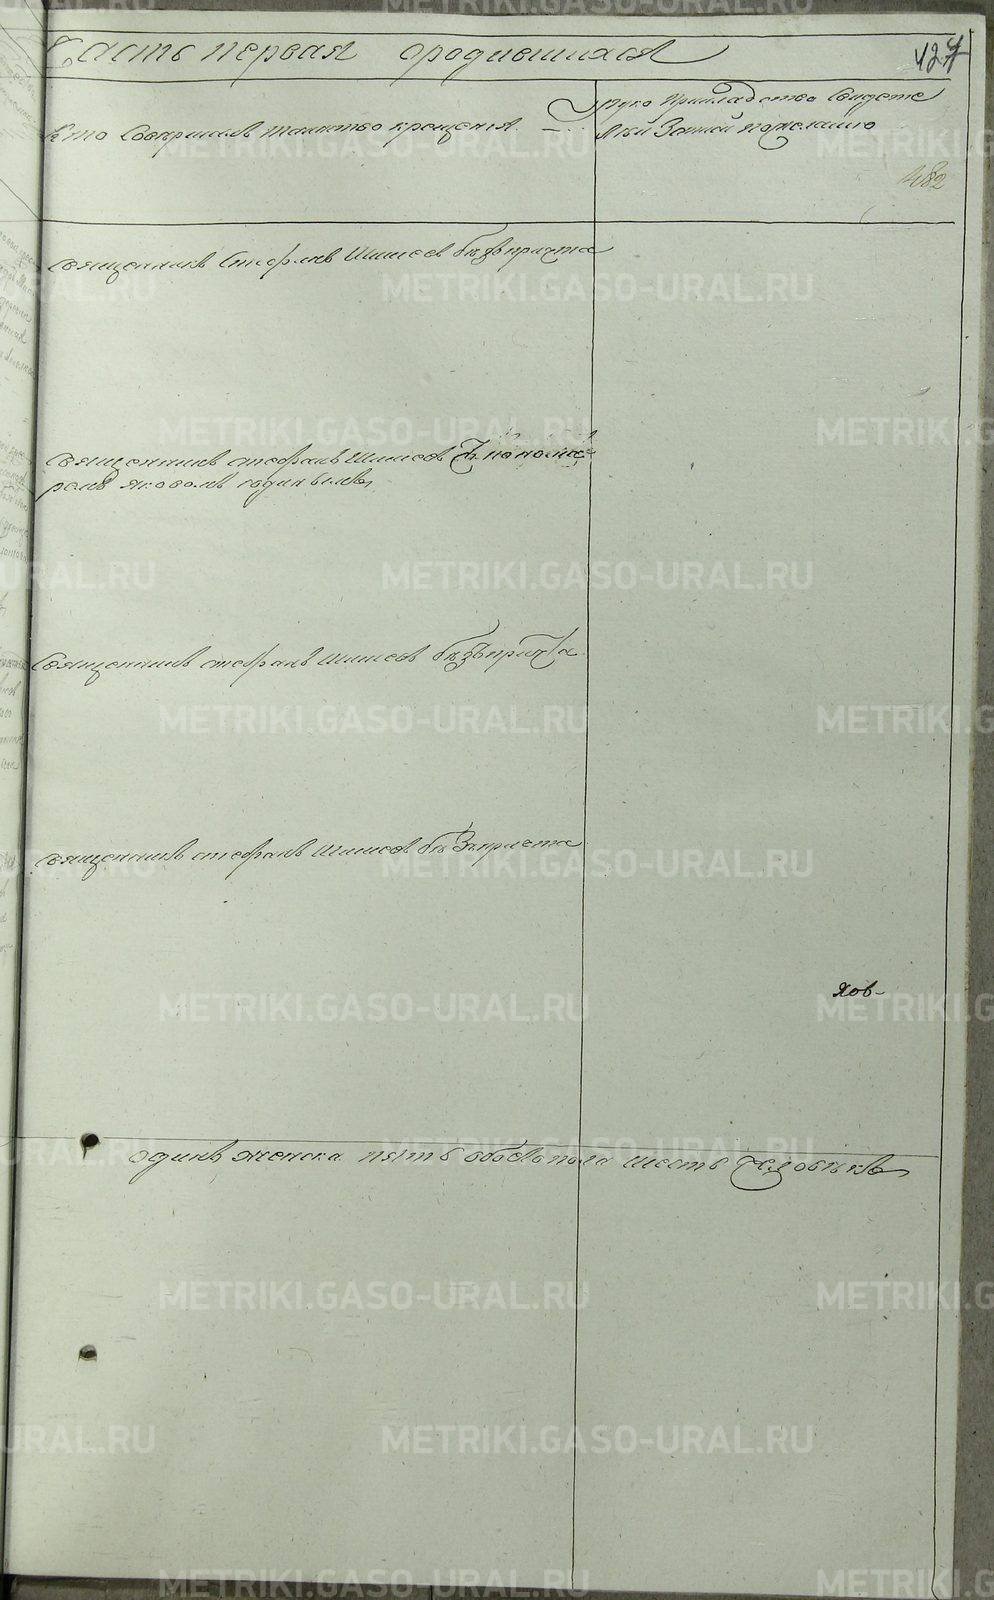 Часть первая о родившихся
127
Кто Совершалъ таинство крещенія
Руко прикладство Свидете
лей Записи по желанию
482
священникъ Стефанъ Шишевъ безъ причта
священникъ стефанъ Шишевъ съ понома
ремъ яковомъ
священникъ стефанъ шишевъ безъ причта
священникъ стефанъ шишевъ безъ причта
ков-
одинъ женска пять обоего пола шесть человекъ
METRIKI.GASO-URAL.RU